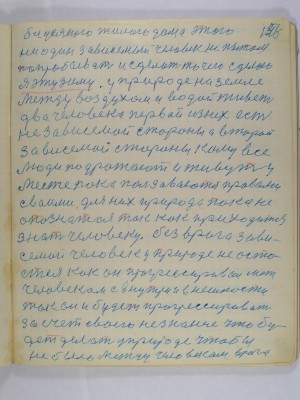 без укяного жилого дама этого
ни один зависемый человек не пытом
попробывать и сделать то чего сделано
Я эту зиму. у природе на земле
Между воздухом и водой живет
два человека первой из них ест
не Зависемой стороны а второй
Зависемой стороны кому все
люди подрожают и живут у
месте пока пользаваются правами
своими. для них природа пака не
опознатоя так как приходится
знат человеку. без врага зави-
семой человек у природе не оста-
лся как он прогрессировал мет
человеком с внутри и внешности
так он и будет прогрессироват
за счет своего незнание что бу-
дет делат у природе чтобы
не было между человеком врага